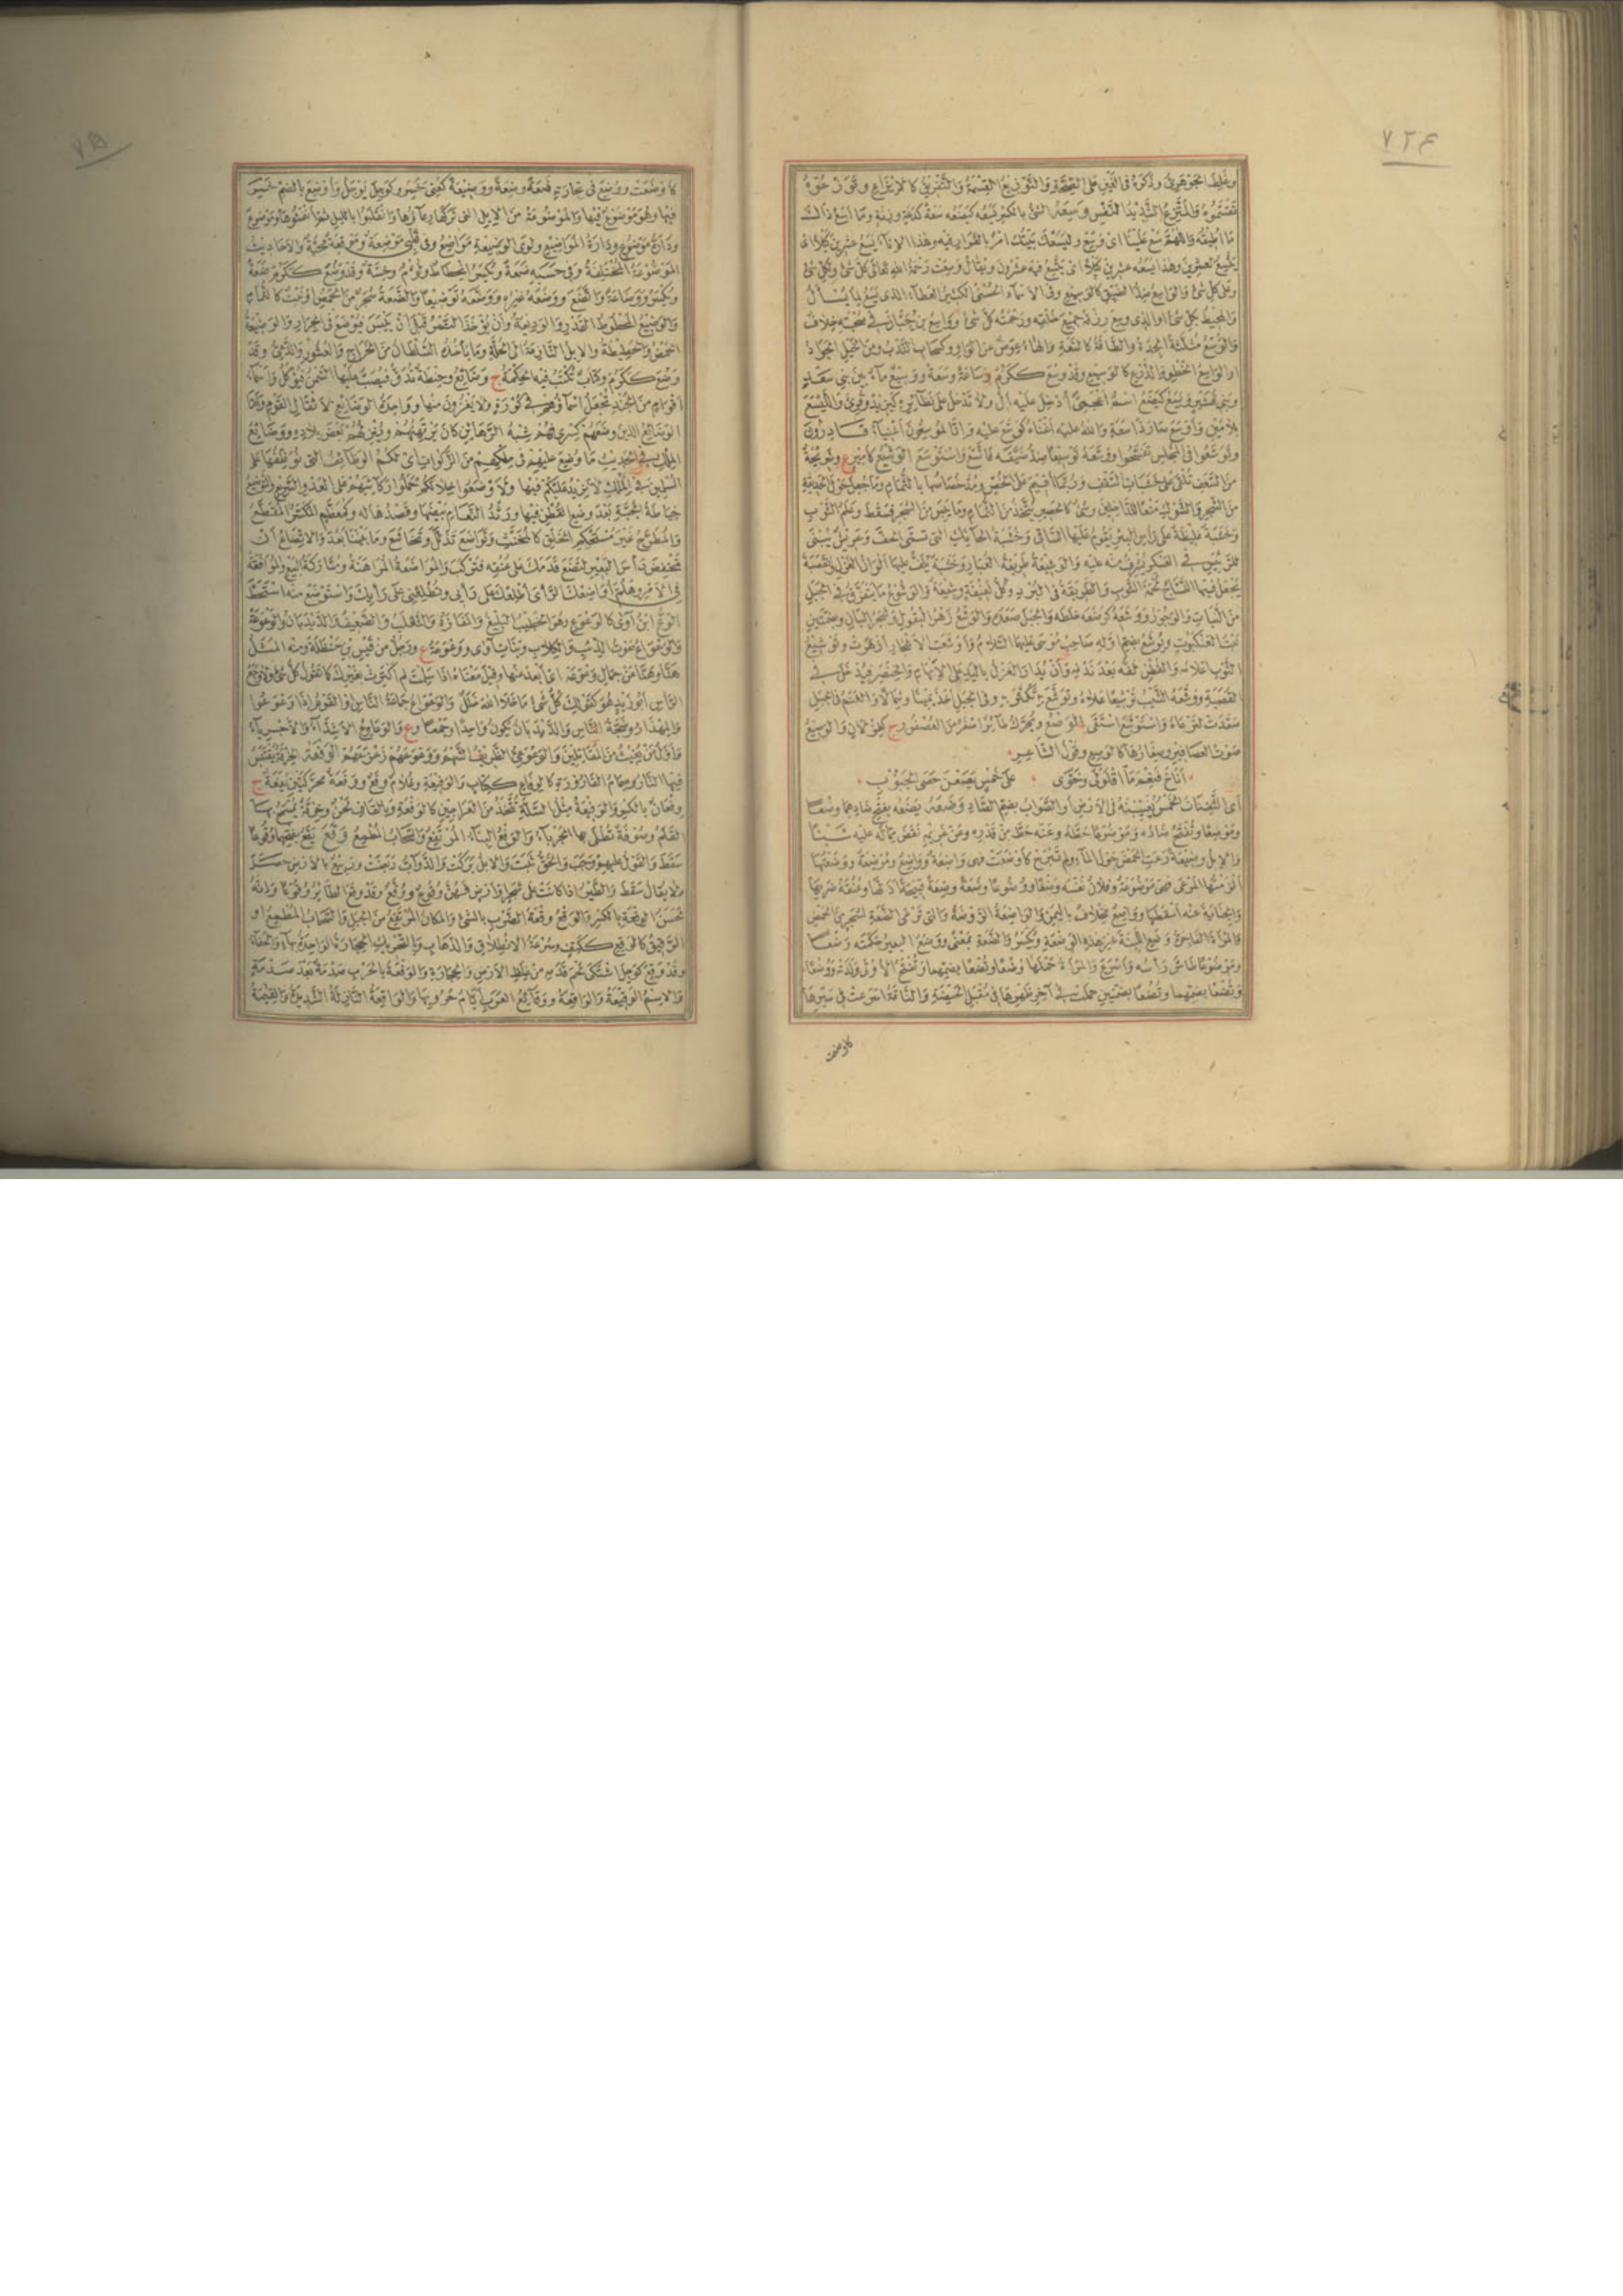 ٧٢٤
وغلط الجوهري وذكره في الغين على الصحة والتوزيع القسمة والتفريق كالإيزاع وتوزعوه
تقسموه والمتزع الشديد النفس وسعه الشئ بالكسر يسعه كيضعه سعة كدعة وزنة وما أسع ذلك
ما أطيقه واللهم سع علينا أى وسع وليسعك بيتك أمر بالقرار فيه وهذا الإناء يسع عشرين كيلا أى
يتسع لعشرين وهذا يسعه عشرون كيلا أى يتسع فيه عشرون ويقال وسعت رحمة الله تعالى كل شئ ولكل شئ
وعلى كل شئ والواسع ضد الضيق كالوسيع وفى الأسماء الحسنى الكثير العطاء الذى يسع لما يسأل
والمحيط بكل شئ أو الذى وسع رزقه جميع خلقه ورحمته كل شئ وواسع بن حبان فى صحبته خلاف
والوسع مثلثة الجدة والطاقة كالسعة والهاء عوض عن الواو وكسحاب الندب ومن الخيل الجواد
أو الواسع الخطو والذرع كالوسيع وقد وسع ككرم وساعة وسعة ووسيع ماء بين بنى سعد
وبنى قشير ويسع كيضع اسم أعجمى أدخل عليه أل ولا تدخل على نظائره كيزيد وقرئ والليسع
بلامين وأوسع صار ذا سعة والله عليه أغناه كوسع عليه وإنا لموسعون أغنياء قادرون
وتوسعوا فى المجلس تفسحوا ووسعه توسيعا ضد ضيقه فاتسع واستوسع الوشيع كأمير ع وشريجة
من السعف تلقى على خشبات السقف وربما أقيم على الخص وسد خصاصها بالثمام وما جعل حول الحديقة
من الشجر والشوك منعا للداخلين وشئ كالحصير يتخذ من الثمام وما يبس من الشجر فسقط وعلم الثوب
وخشبة غليظة على رأس البئر يقوم عليها الساقى وخشبة الحائك التى تسمى الحف وعريش يبنى
للرئيس فى العسكر يشرف منه عليه والوشيعة طريقة الغبار وخشبة يلف عليها ألوان الغزل والقصبة
يجعل فيها النساج لحمة الثوب والطريقة فى البرد وكل لفيفة وشيعة والوشوع ما يتفرق فى الجبل
من النبات والوجور ووشعه كوضعه خلطه والجبل صعده والوشع زهر البقول وشجر البان وبضمتين
بيت العنكبوت ويوشع بضم أوله صاحب موسى عليهما السلام وأوشعت الأشجار أزهرت وتوشيع
الثوب إعلامه والقطن لفه بعد ندفه وأن يدار الغزل باليد على الإبهام والخنصر فيدخل فى
القصبة ووشعه الشيب توشيعا علاه وتوشع به تكثر به وفى الجبل أخذ يمينا وشمالا والغنم فى الجبل
صعدت لترعاه واستوشع استقى الوصع ويحرك طائر أصغر من العصفور ج كغزلان والوصيع
صوت العصافير وصغارها كالوصع وقول الشاعر
أناخ فنعم ما اقلولى وخوى على خمس يصعن حصى الجبوب
أى الثفنات الخمس يغيبنه فى الأرض أو الصواب بضم الصاد وضعه يضعه بفتح ضادهما وضعا
وموضعا وتفتح ضاده وموضوعا حطه وعنه حط من قدره وعن غريمه نقص مما له عليه شيئا
والإبل وضيعة رعت الحمض حول الماء ولم تبرح كأوضعت فهى واضعة وواضع وموضعة ووضعتها
ألزمتها المرعى فهى موضوعة وفلان نفسه وضعا ووضوعا وضعة وضعة قبيحة أذلها وعنقه ضربها
والجناية عنه أسقطها وواضع مخلاف باليمن والواضعة الروضة والتى ترعى الضعة لشجر من الحمض
والمرأة الفاجرة وضع اللبنة غير هذه الوضعة ويكسر والضعة بمعنى ووضع البعير حكمته وضعا
وموضوعا طامن رأسه وأسرع والمرأة حملها وضعا وتضعا بضمهما وتفتح الأولى ولدته ووضعا
وتضعا بضمهما وتضعا بضمتين حملت فى آخر طهرها فى مقبل الحيضة والناقة أسرعت فى سيرها
كاوضعت
كأوضعت ووضع فى تجارته ضعة وضعة ووضيعة كعنى خسر وكوجل يوجل وأوضع بالضم خسر
فيها وهو موضوع فيها والموضوعة من الإبل التى تركها رعاؤها وانقلبوا بالليل ثم أنفشوها وموضوع
ودارة موضوع ودارة المواضيع ولوى الوضيعة مواضع وفى قلبى موضعة وموقعة محبة والأحاديث
الموضوعة المختلقة وفى حسبه ضعة ويكسر انحطاط ولؤم وخسة وقد وضع ككرم ضعة
ويكسر ووضاعة واتضع ووضعه غيره ووضعه توضيعا والضعة شجر من الحمض أو نبت كالثمام
والوضيع المحطوط القدر والوديعة وأن يؤخذ التمر قبل أن ييبس فيوضع فى الجرار والوضيعة
الحمض والحطيطة والإبل النازعة إلى الخلة وما يأخذه السلطان من الخراج والعشور والدعى وقد
وضع ككرم وكتاب تكتب فيه الحكمة ج وضائع وحنطة تدق فيصب عليها السمن فيؤكل وأسماء
أقوام من الجند تجعل أسماؤهم فى كورة ولا يغزون منها وواحدة الوضائع لأثقال القوم وأما
الوضائع الذين وضعهم كسرى فهم شبه الرهائن كان يرتهنهم وينزلهم بعض بلاده ووضائع
الملك فى الحديث ما وضع عليهم فى ملكهم من الزكوات أى لكم الوظائف التى نوظفها على
المسلمين فى الملك لا نزيد عليكم فيها ولأوضعوا خلالكم حملوا ركائبهم على العدو السريع والتوضيع
خياطة الجبة بعد وضع القطن فيها ورثد النعام بيضها ونضدها له وكمعظم المكسر المقطع
والمطرح غير مستحكم الخلق كالمخنث وتواضع تذلل وتخاشع وما بيننا بعد والاتضاع أن
تخفض رأس البعير لتضع قدمك على عنقه فتركب والمواضعة المراهنة ومتاركة البيع والموافقة
فى الأمر وهلم أواضعك الرأى أطلعك على رأيى وتطلعنى على رأيك واستوضع منه استحط
الوع ابن آوى كالوعوع وهو الخطيب البليغ والمفازة والثعلب والضعيف والديدبان والوعوعة
والوعواع صوت الذئب والكلاب وبنات آوى ووعوعة ع ورجل من قيس بن حنظلة ومنه المثل
هنا وهنا عن جمال وعوعه أى ابعد عنها وقيل معناه إذا سلمت لم أكترث بغيرك كما تقول كل شئ ولا وجع
الرأس أبو زيد هو كقولك كل شئ ما خلا الله جلل والوعواع جماعة الناس أو القوم إذا وعوعوا
والمهذار وضجة الناس والديدبان تكون واحدا وجمعا و ع والوعاوع الأشداء والأجرياء
وأول من يغيث من المقاتلين والوعوعى الظريف الشهم ووعوعهم زعزعهم الوفعة الخرقة يقتبس
فيها النار وصمام القارورة كالوفاع ككتاب والوفيعة وغلام وفع ووفعة محركتين يفعة ج
وفعان بالكسر والوفيعة مثل السلة تتخذ من العراجين كالوفعة وبالقاف لحن وخرقة يمسح بها
القلم وصوفة تطلى بها الجرباء والوفع البناء المرتفع والسحاب المطمع وقع يقع بفتحهما وقوعا
سقط والقول عليهم وجب والحق ثبت والإبل بركت والدواب ربضت وربيع بالأرض حصل
ولا يقال سقط والطير إذا كانت على شجر أو أرض فهن وقوع ووقع وقد وقع الطائر وقوعا وإنه
لحسن الوقعة بالكسر والوقع وقعة الضرب بالشئ والمكان المرتفع من الجبل والسحاب المطمع أو
الرقيق كالوقع ككتف وسرعة الانطلاق والذهاب وبالتحريك الحجارة الواحدة بهاء والحفاء
وقد وقع كوجل اشتكى لحم قدمه من غلظ الأرض والحجارة والوقعة بالحرب صدمة بعد صدمة
والاسم الوقيعة والواقعة ووقائع العرب أيام حروبها والواقعة النازلة الشديدة والقيامة